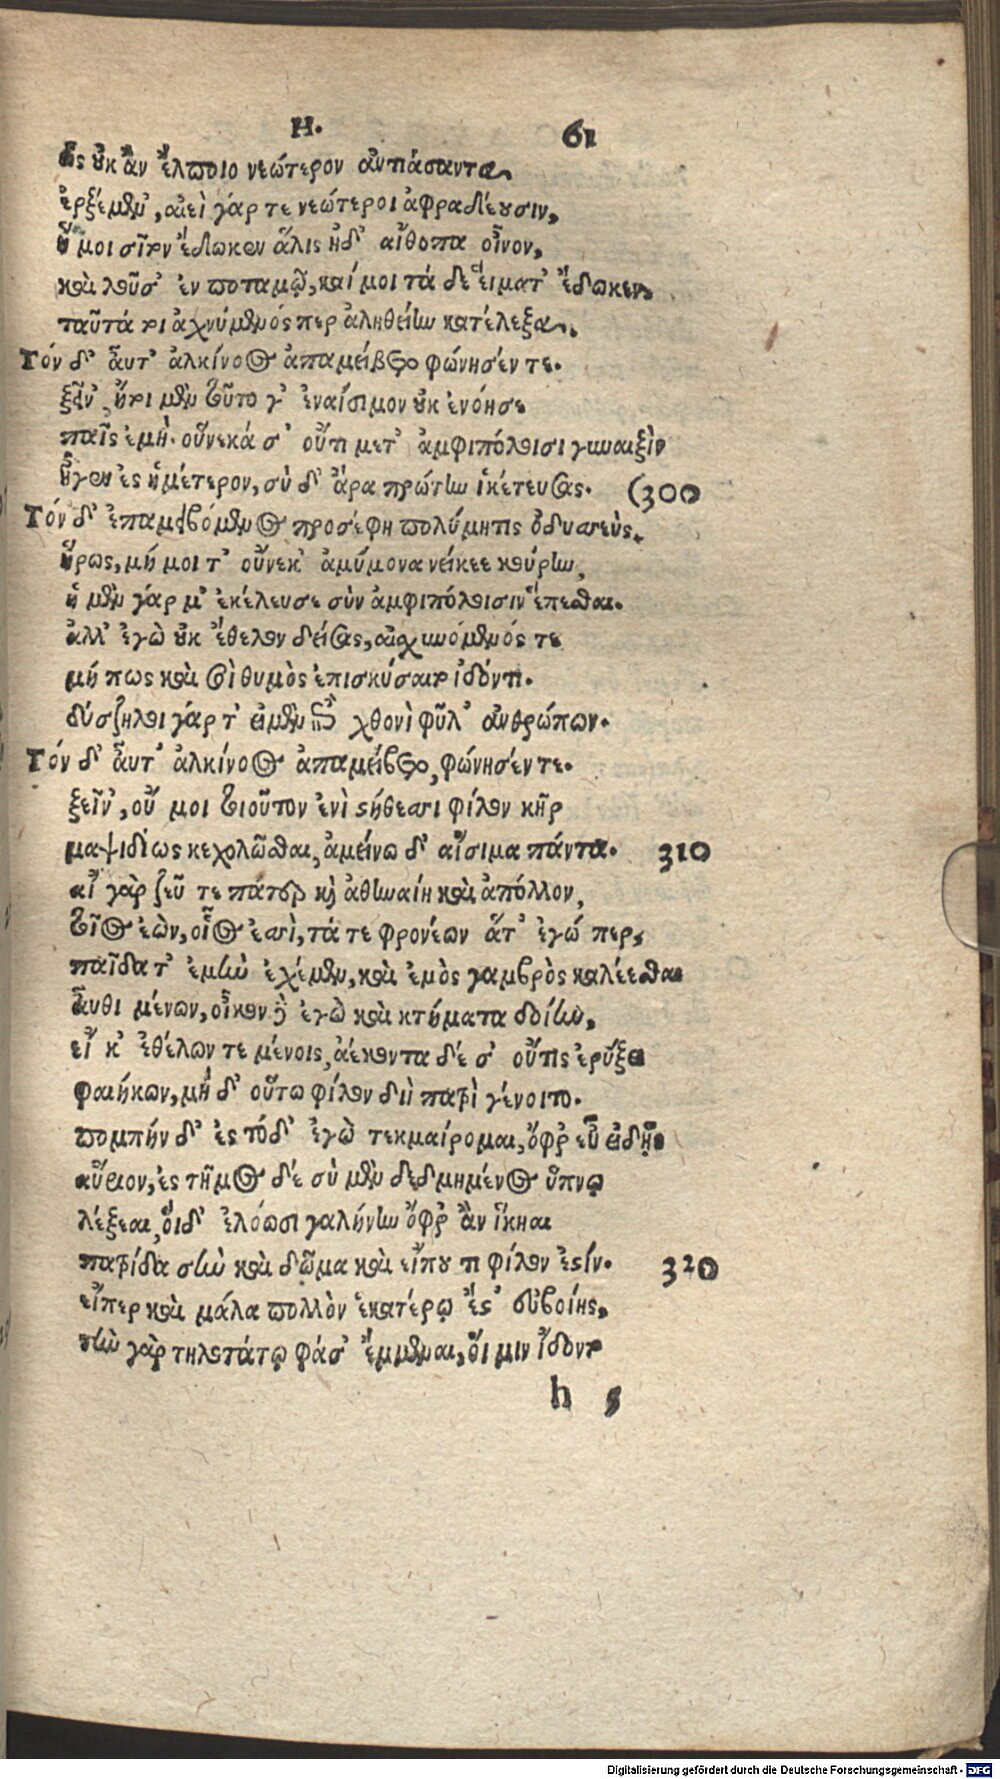 Η. 61
ὡς οὐκ ἂν ἔλποιο νεώτερον ἀντιάσαντα
ἐρξέμεν, αἰεὶ γάρ τε νεώτεροι ἀφραδέουσιν,
ἥ μοι σῖτον ἔδωκεν ἅλις ἠδ' αἴθοπα οἶνον,
καὶ λοῦσ' ἐν ποταμῷ, καί μοι τά δε εἵματ' ἔδωκεν,
ταῦτά τοι ἀχνύμενός περ ἀληθείην κατέλεξα.
Τόν δ' αὖτ' ἀλκίνοος ἀπαμείβετο φώνησέν τε.
ξεῖν', ἤτοι μὲν τοῦτο γ' ἐναίσιμον οὐκ ἐνόησε
παῖς ἐμὴ. οὕνεκά σ' οὔτι μετ' ἀμφιπόλοισι γυναιξὶν
ἦγεν ἐς ἡμέτερον, σὺ δ' ἄρα πρώτην ἱκέτευσας. (300
Τόν δ' ἐπαμειβόμενος προσέφη πολύμητις ὀδυσσεὺς,
ἥρως, μή μοι τ' οὕνεκ' ἀμύμονα νείκεε κούρην,
ἡ μὲν γάρ μ' ἐκέλευσε σὺν ἀμφιπόλοισιν ἕπεσθαι.
ἀλλ' ἐγὼ οὐκ ἔθελον δείσας, αἰσχυνόμενός τε
μή πως καὶ σοὶ θυμὸς ἐπισκύσαιτο ἰδόντι.
δύσζηλοι γάρ τ' εἰμὲν ἐπὶ χθονὶ φῦλ' ἀνθρώπων.
Τόν δ' αὖτ' ἀλκίνοος ἀπαμείβετο, φώνησέν τε.
ξεῖν', οὔ μοι τοιοῦτον ἐνὶ στήθεσσι φίλον κῆρ
μαψιδίως κεχολῶσθαι, ἀμείνω δ' αἴσιμα πάντα. 310
αἲ γὰρ ζεῦ τε πάτερ καὶ ἀθηναίη καὶ ἀπόλλον,
τοῖος ἐὼν, οἷος ἐσσὶ, τά τε φρονέων ἅτ' ἐγώ περ,
παῖδα τ' ἐμὴν ἐχέμεν, καὶ ἐμὸς γαμβρὸς καλέεσθαι
αὖθι μένων, οἶκον δὲ ἐγὼ καὶ κτήματα δοίην,
εἴ κ' ἐθέλων τε μένοις, ἀέκοντα δέ σ' οὔτις ἐρύξει
φαιήκων, μὴ δ' οὕτω φίλον διὶ πατρὶ γένοιτο.
πομπήν δ' ἐς τόδ' ἐγὼ τεκμαίρομαι, ὄφρ' εὖ εἰδῇς
αὔριον, ἐς τῆμος δέ σὺ μὲν δεδμημένος ὕπνῳ
λέξεαι, οἱ δ' ἐλόωσι γαλήνην ὄφρ' ἂν ἵκηαι
πατρίδα σὴν καὶ δῶμα καὶ εἴπου τι φίλον ἐστίν. 320
εἴπερ καὶ μάλα πολλὸν ἑκατέρω ἔστ' εὐβοίης,
τὴν γὰρ τηλοτάτω φάσ' ἔμμεναι, οἵ μιν ἴδοντο
h 5
Digitalisierung gefördert durch die Deutsche Forschungsgemeinschaft - DFG